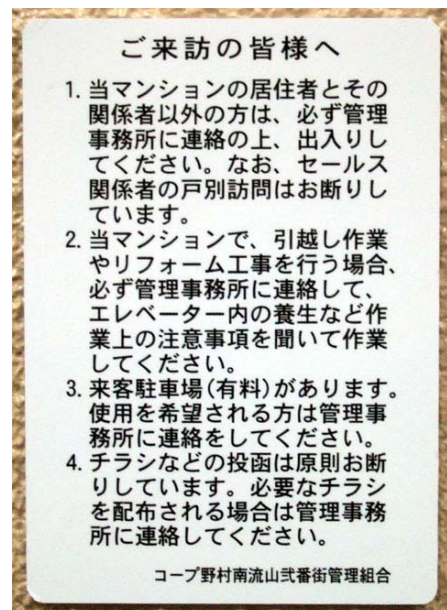 ご来訪の皆様へ
1. 当マンションの居住者とその
関係者以外の方は、必ず管理
事務所に連絡の上、出入りし
てください。なお、セールス
関係者の戸別訪問はお断りし
ています。
2. 当マンションで、引越し作業
やリフォーム工事を行う場合、
必ず管理事務所に連絡して、
エレベーター内の養生など作
業上の注意事項を聞いて作業
してください。
3. 来客駐車場(有料)があります。
使用を希望される方は管理事
務所に連絡をしてください。
4. チラシなどの投函は原則お断
りしています。必要なチラシ
を配布される場合は管理事務
所に連絡してください。
コープ野村南流山弐番街管理組合